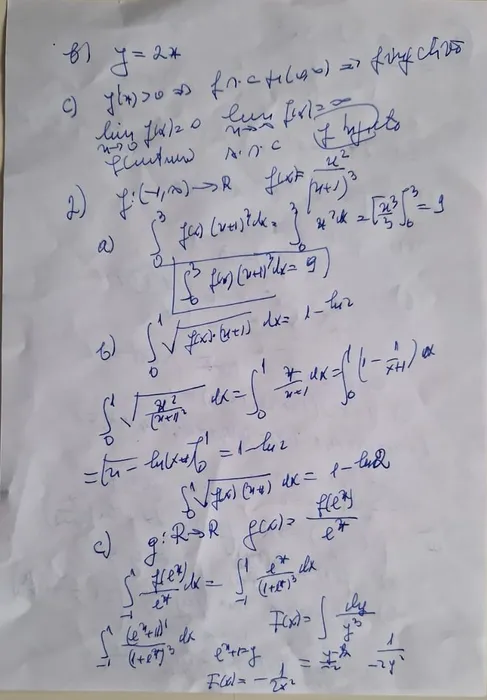 b) y = 2x
c) f'(x) > 0 ⇒ f s.c pe (0,∞) ⇒ f injectivă
lim x→0 f(x) = 0 lim x→∞ f(x) = ∞
f continuă f bijectivă
2) f: (-1,∞) → R f(x) = x²/(x+1)³
a) ∫₀³ f(x) (x+1)³ dx = ∫₀³ x² dx = [x³/3]₀³ = 9
∫₀³ f(x) (x+1)³ dx = 9
b) ∫₀¹ √(f(x)·(x+1)) dx = 1 - ln2
∫₀¹ √(x²/(x+1)²) dx = ∫₀¹ x/(x+1) dx = ∫₀¹ (1 - 1/(x+1)) dx
= [x - ln(x+1)]₀¹ = 1 - ln2
∫₀¹ √(f(x)(x+1)) dx = 1 - ln2
c) g: R → R g(x) = f(eˣ)/eˣ
∫₋₁¹ f(eˣ)/eˣ dx = ∫₋₁¹ eˣ/(1+eˣ)³ dx
∫₋₁¹ (eˣ+1)'/(1+eˣ)³ dx F(x) = ∫ dy/y³
eˣ+1 = y
F(x) = -1/2x²